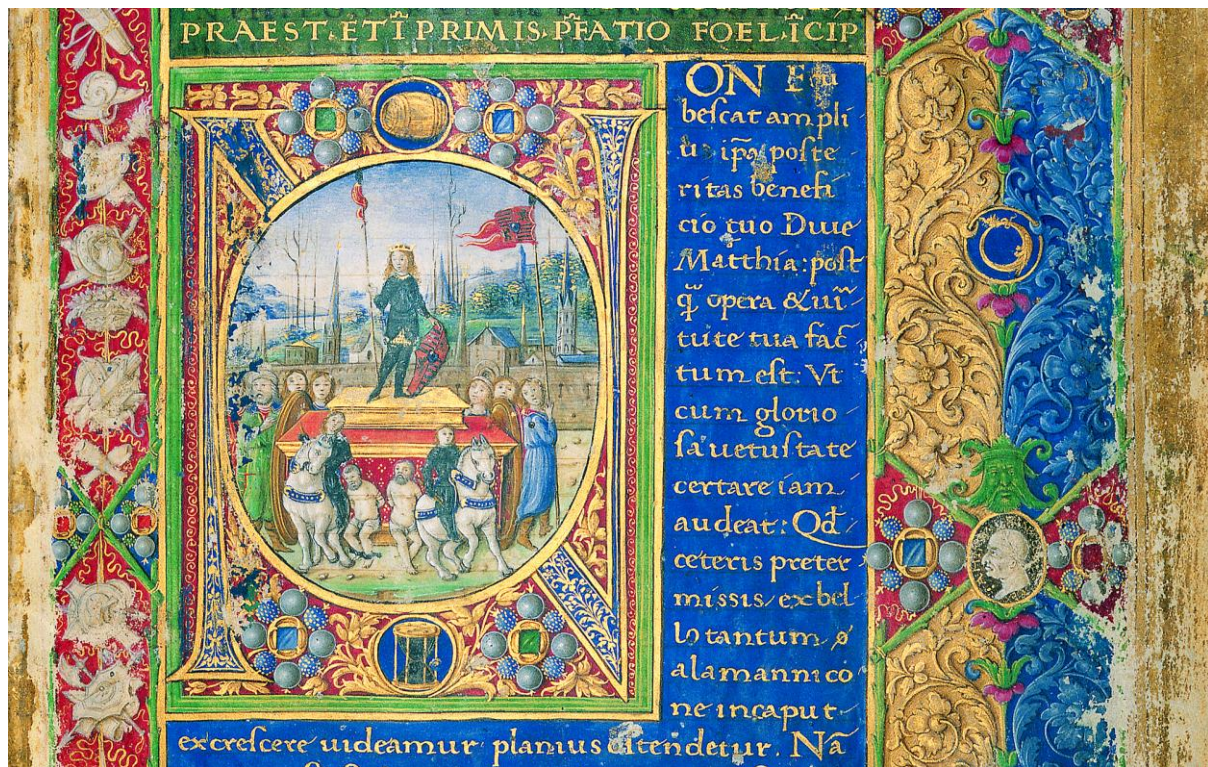 PRAEST. ETĪ PRIMIS. P̄FATIO FOEL. ĪCIP
N
ON E
beſcat ampli
ipā poſte
ritas benefi
cio tuo Diue
Matthia: poſt
q̄ opera & uir̄
tute tua fac̄
tum eſt: Vt
cum glorio
ſa uetuſtate
certare iam
audeat: Qd̄
ceteris preter
miſſis, ex bel
lo tantum
alamanni co
ne in caput
excreſcere uideamur planius oſtendetur. Nā